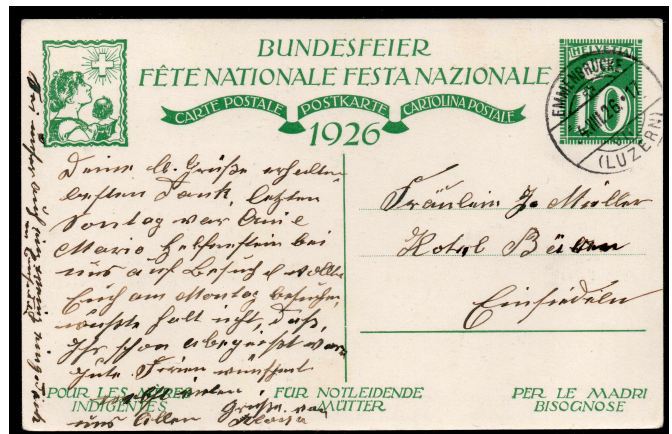 BUNDESFEIER
FÊTE NATIONALE FESTA NAZIONALE
CARTE POSTALE POSTKARTE CARTOLINA POSTALE
1926
HELVETIA
10
EMMENBRÜCKE
VIII.26.-17
(LUZERN)
Deine lb. Grüße erhalten
besten Dank, letzten
Sontag war
Mario Helfenstein bei
uns auf Besuch & wollte
Euch am Montag besuchen,
wußte halt nicht, daß
Ihr schon abgereist
Gute Ferien wünscht
Grüße von
uns allen
Fräulein J. Müller
Hotel Bären
Einsiedeln
POUR LES MÈRES
INDIGENTES
FÜR NOTLEIDENDE
MÜTTER
PER LE MADRI
BISOGNOSE